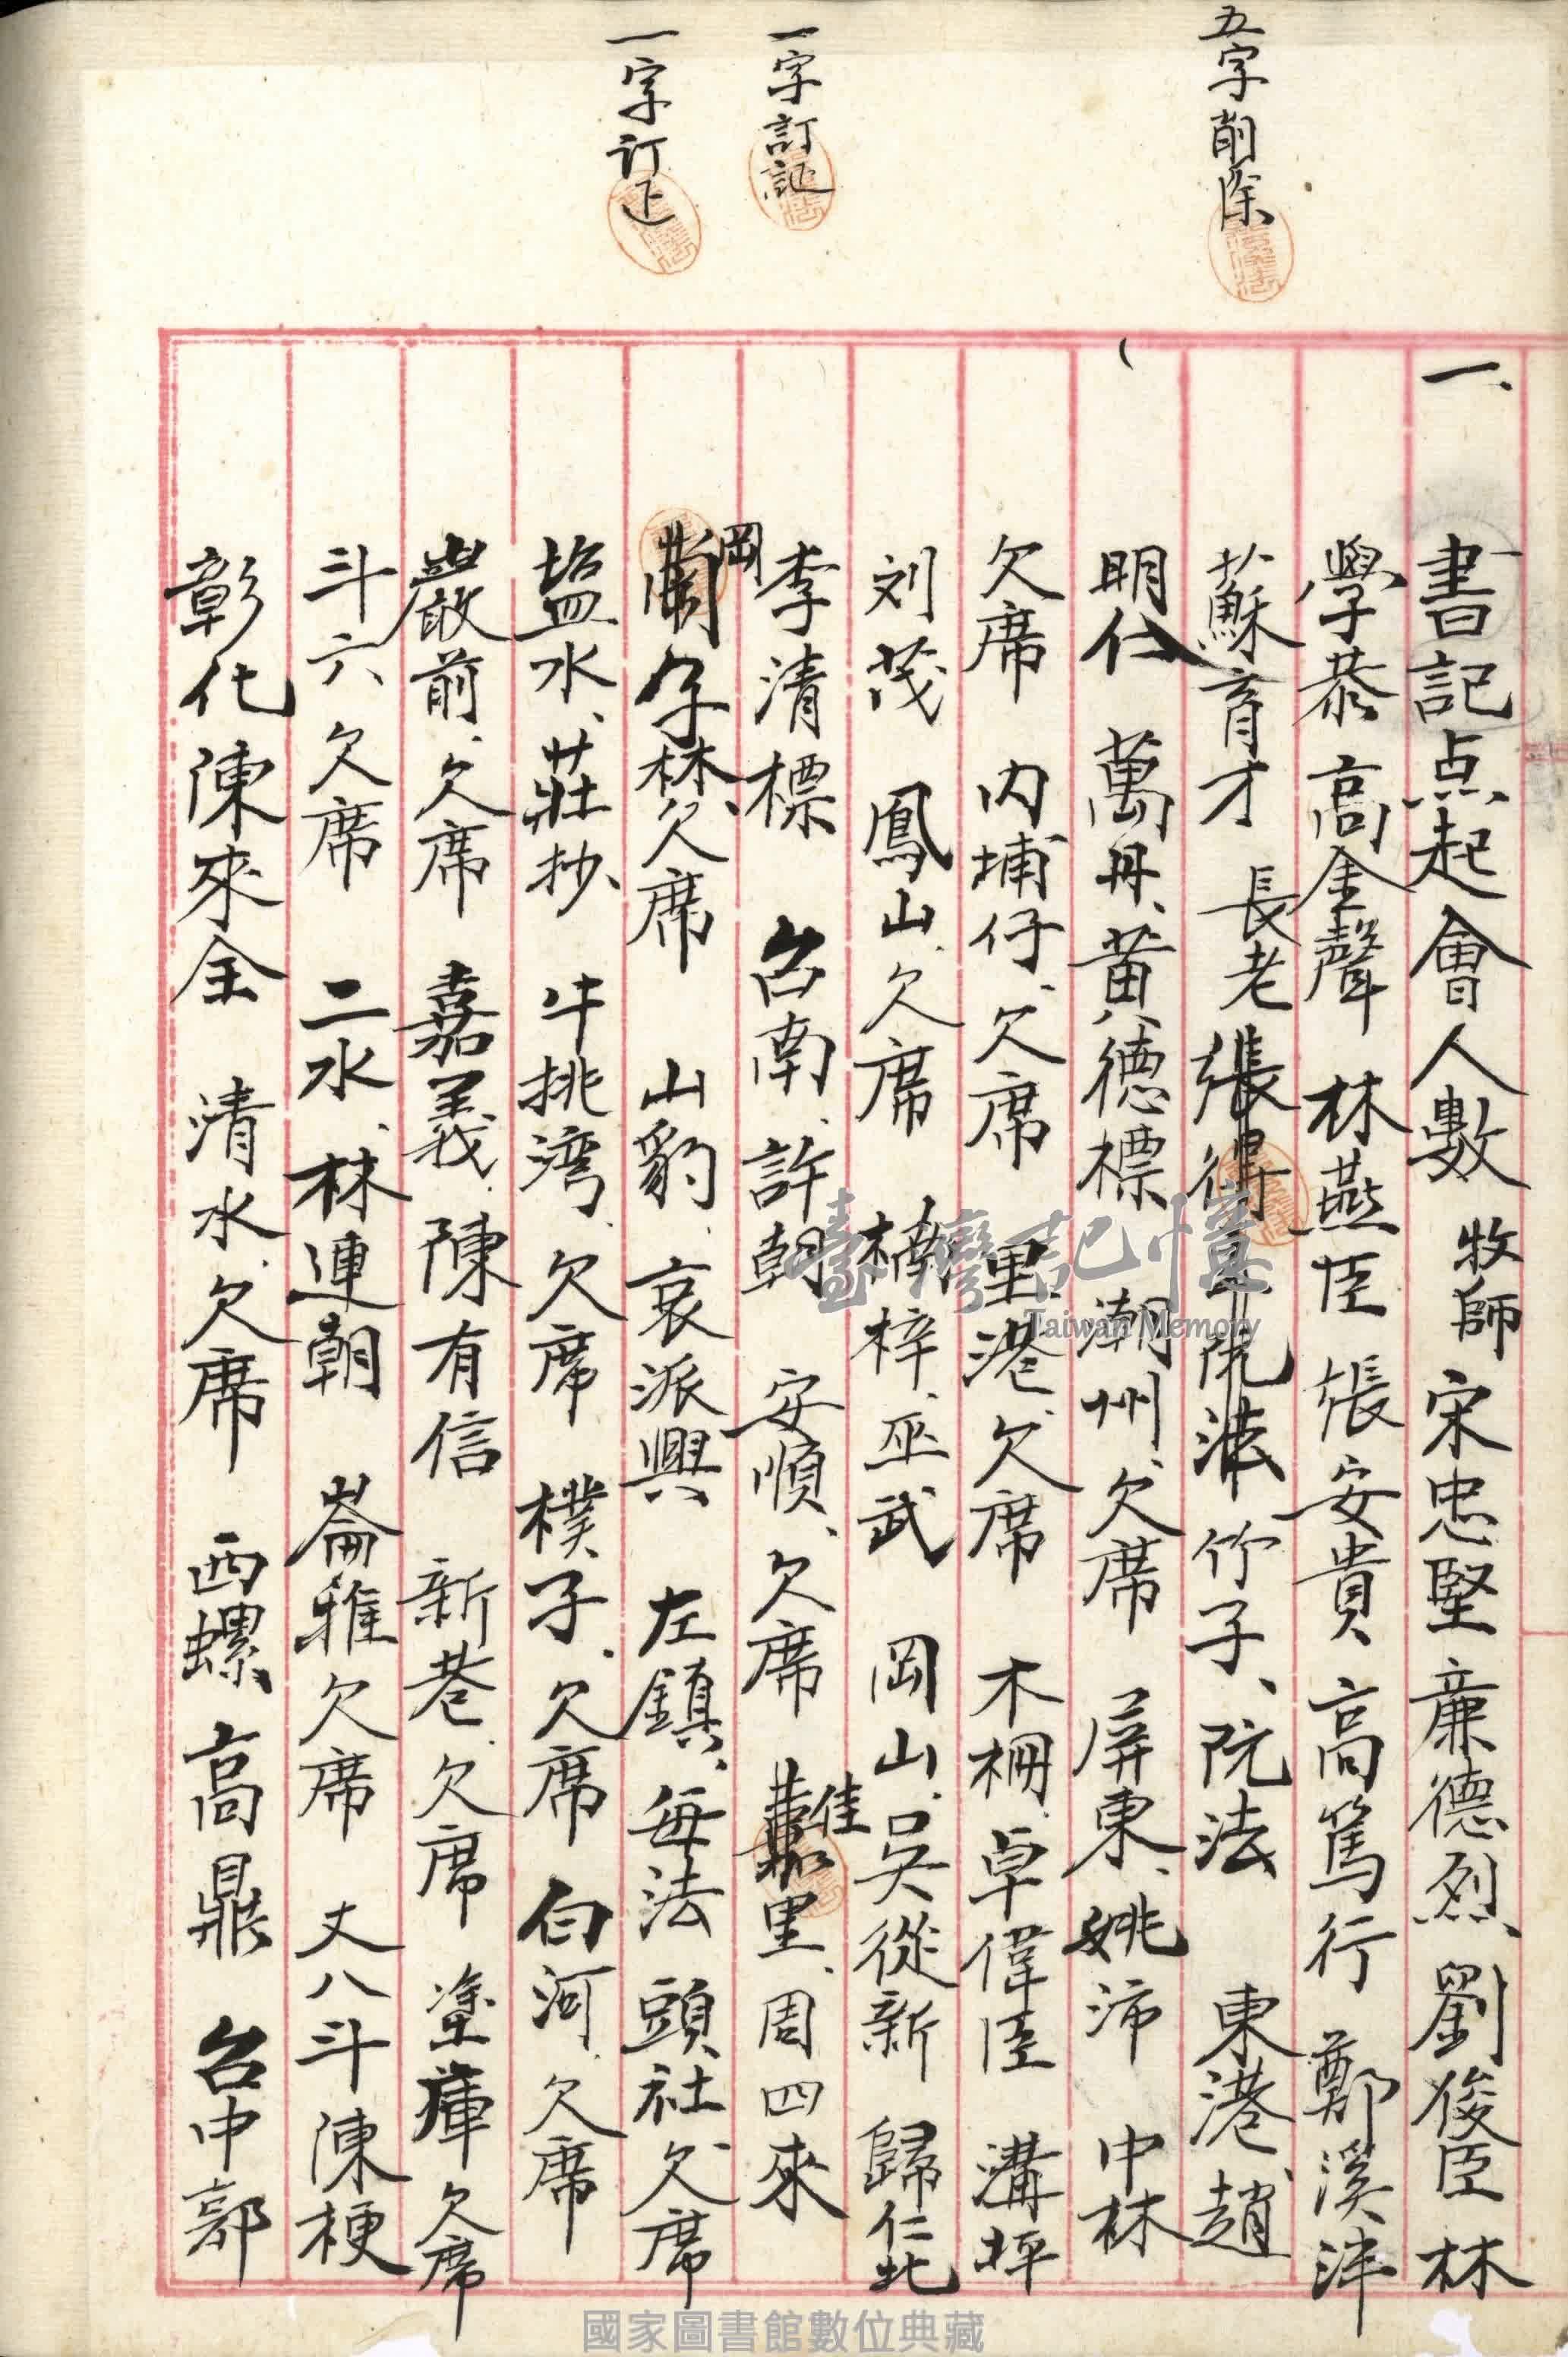 五字削除
一字訂証
一字訂正
一、書記点起會人數 牧師 宋忠堅 廉德烈、劉俊臣 林
學恭 高金聲 林燕臣 張安貴 高篤行 鄭溪泮
蘇育才 長老 張得 阮法 竹子、阮法 東港、趙
明仁 萬丹、黃德標 潮州、欠席 屏東、姚沛 中林
欠席 內埔仔、欠席 里港、欠席 木柵、卓偉臣 溝坪
刘茂 鳳山、欠席 楠梓、巫武 岡山、吳從新 歸仁北
李清標 台南、許朝 安順、欠席 佳里、周四來
岡仔林、欠席 山豹、哀派興 左鎮、每法 頭社、欠席
塩水、莊抄 牛挑湾、欠席 樸子、欠席 白河、欠席
巖前、欠席 嘉義、陳有信 新巷、欠席 塗庫 欠席
斗六 欠席 二水、林連朝 崙雅 欠席 丈八斗 陳梗
彰化 陳來全 清水、欠席 西螺 高鼎 台中 郭
臺灣記憶
Taiwan Memory
國家圖書館數位典藏